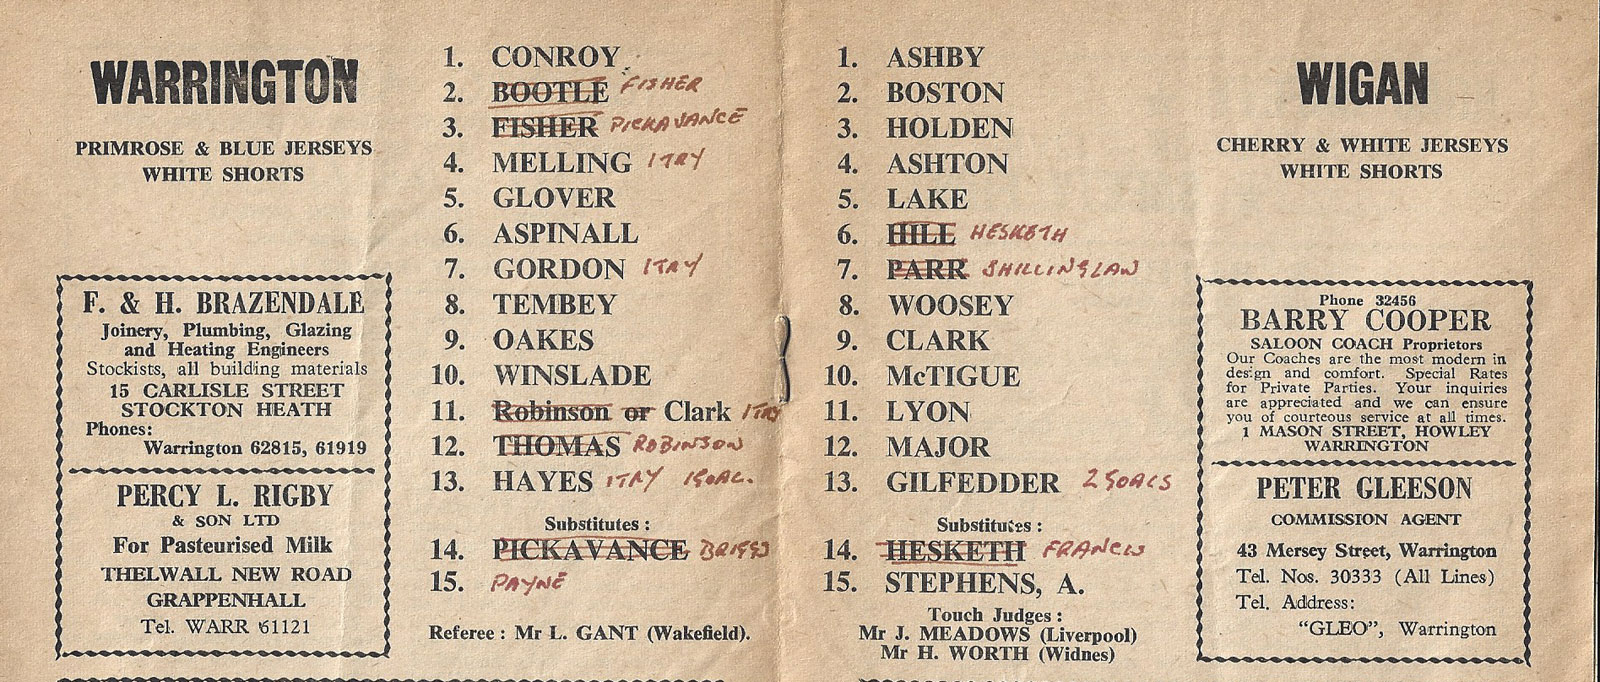 WARRINGTON
PRIMROSE & BLUE JERSEYS
WHITE SHORTS
F. & H. BRAZENDALE
Joinery, Plumbing, Glazing
and Heating Engineers
Stockists, all building materials
15 CARLISLE STREET
STOCKTON HEATH
Phones:
Warrington 62815, 61919
PERCY L. RIGBY
& SON LTD
For Pasteurised Milk
THELWALL NEW ROAD
GRAPPENHALL
Tel. WARR 61121
1. CONROY
2. BOOTLE FISHER
3. FISHER PICKAVANCE
4. MELLING 1TRY
5. GLOVER
6. ASPINALL
7. GORDON 1TRY
8. TEMBEY
9. OAKES
10. WINSLADE
11. Robinson or Clark 1TRY
12. THOMAS ROBINSON
13. HAYES 1TRY 1GOAL.
Substitutes :
14. PICKAVANCE BRIGGS
15. PAYNE
Referee : Mr L. GANT (Wakefield).
1. ASHBY
2. BOSTON
3. HOLDEN
4. ASHTON
5. LAKE
6. HILL HESKETH
7. PARR SHILLINGLAW
8. WOOSEY
9. CLARK
10. McTIGUE
11. LYON
12. MAJOR
13. GILFEDDER 2GOALS
Substitutes :
14. HESKETH FRANCIS
15. STEPHENS, A.
Touch Judges :
Mr J. MEADOWS (Liverpool)
Mr H. WORTH (Widnes)
WIGAN
CHERRY & WHITE JERSEYS
WHITE SHORTS
Phone 32456
BARRY COOPER
SALOON COACH Proprietors
Our Coaches are the most modern in
design and comfort. Special Rates
for Private Parties. Your inquiries
are appreciated and we can ensure
you of courteous service at all times.
1 MASON STREET, HOWLEY
WARRINGTON
PETER GLEESON
COMMISSION AGENT
43 Mersey Street, Warrington
Tel. Nos. 30333 (All Lines)
Tel. Address:
"GLEO", Warrington